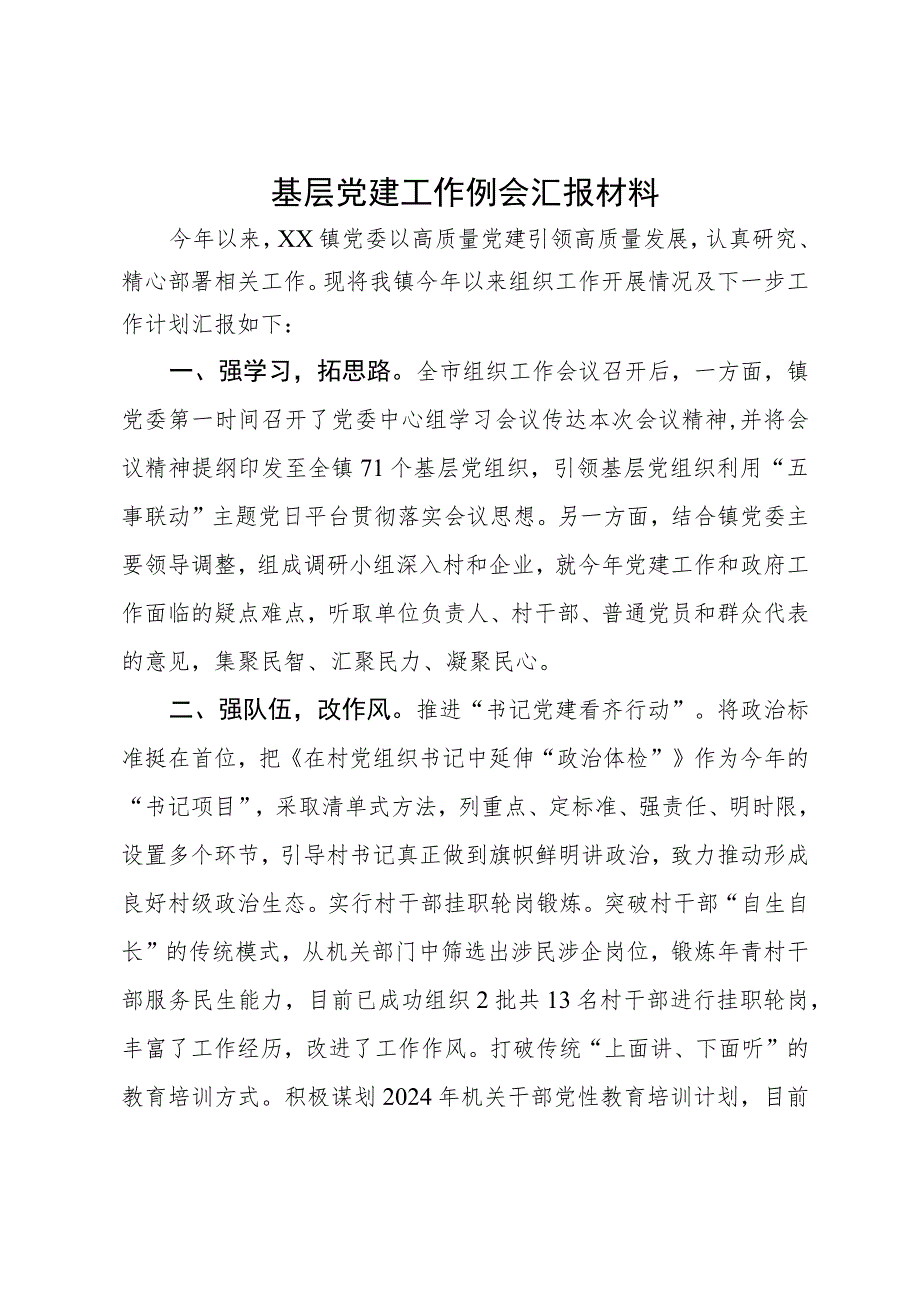 基层党建工作例会汇报材料
今年以来，XX 镇党委以高质量党建引领高质量发展，认真研究、
精心部署相关工作。现将我镇今年以来组织工作开展情况及下一步工
作计划汇报如下：
一、强学习，拓思路。全市组织工作会议召开后，一方面，镇
党委第一时间召开了党委中心组学习会议传达本次会议精神,并将会
议精神提纲印发至全镇 71 个基层党组织，引领基层党组织利用“五
事联动”主题党日平台贯彻落实会议思想。另一方面，结合镇党委主
要领导调整，组成调研小组深入村和企业，就今年党建工作和政府工
作面临的疑点难点，听取单位负责人、村干部、普通党员和群众代表
的意见，集聚民智、汇聚民力、凝聚民心。
二、强队伍，改作风。推进“书记党建看齐行动”。将政治标
准挺在首位，把《在村党组织书记中延伸“政治体检”》作为今年的
“书记项目”，采取清单式方法，列重点、定标准、强责任、明时限，
设置多个环节，引导村书记真正做到旗帜鲜明讲政治，致力推动形成
良好村级政治生态。实行村干部挂职轮岗锻炼。突破村干部“自生自
长”的传统模式，从机关部门中筛选出涉民涉企岗位，锻炼年青村干
部服务民生能力，目前已成功组织 2 批共 13 名村干部进行挂职轮岗，
丰富了工作经历，改进了工作作风。打破传统“上面讲、下面听”的
教育培训方式。积极谋划 2024 年机关干部党性教育培训计划，目前